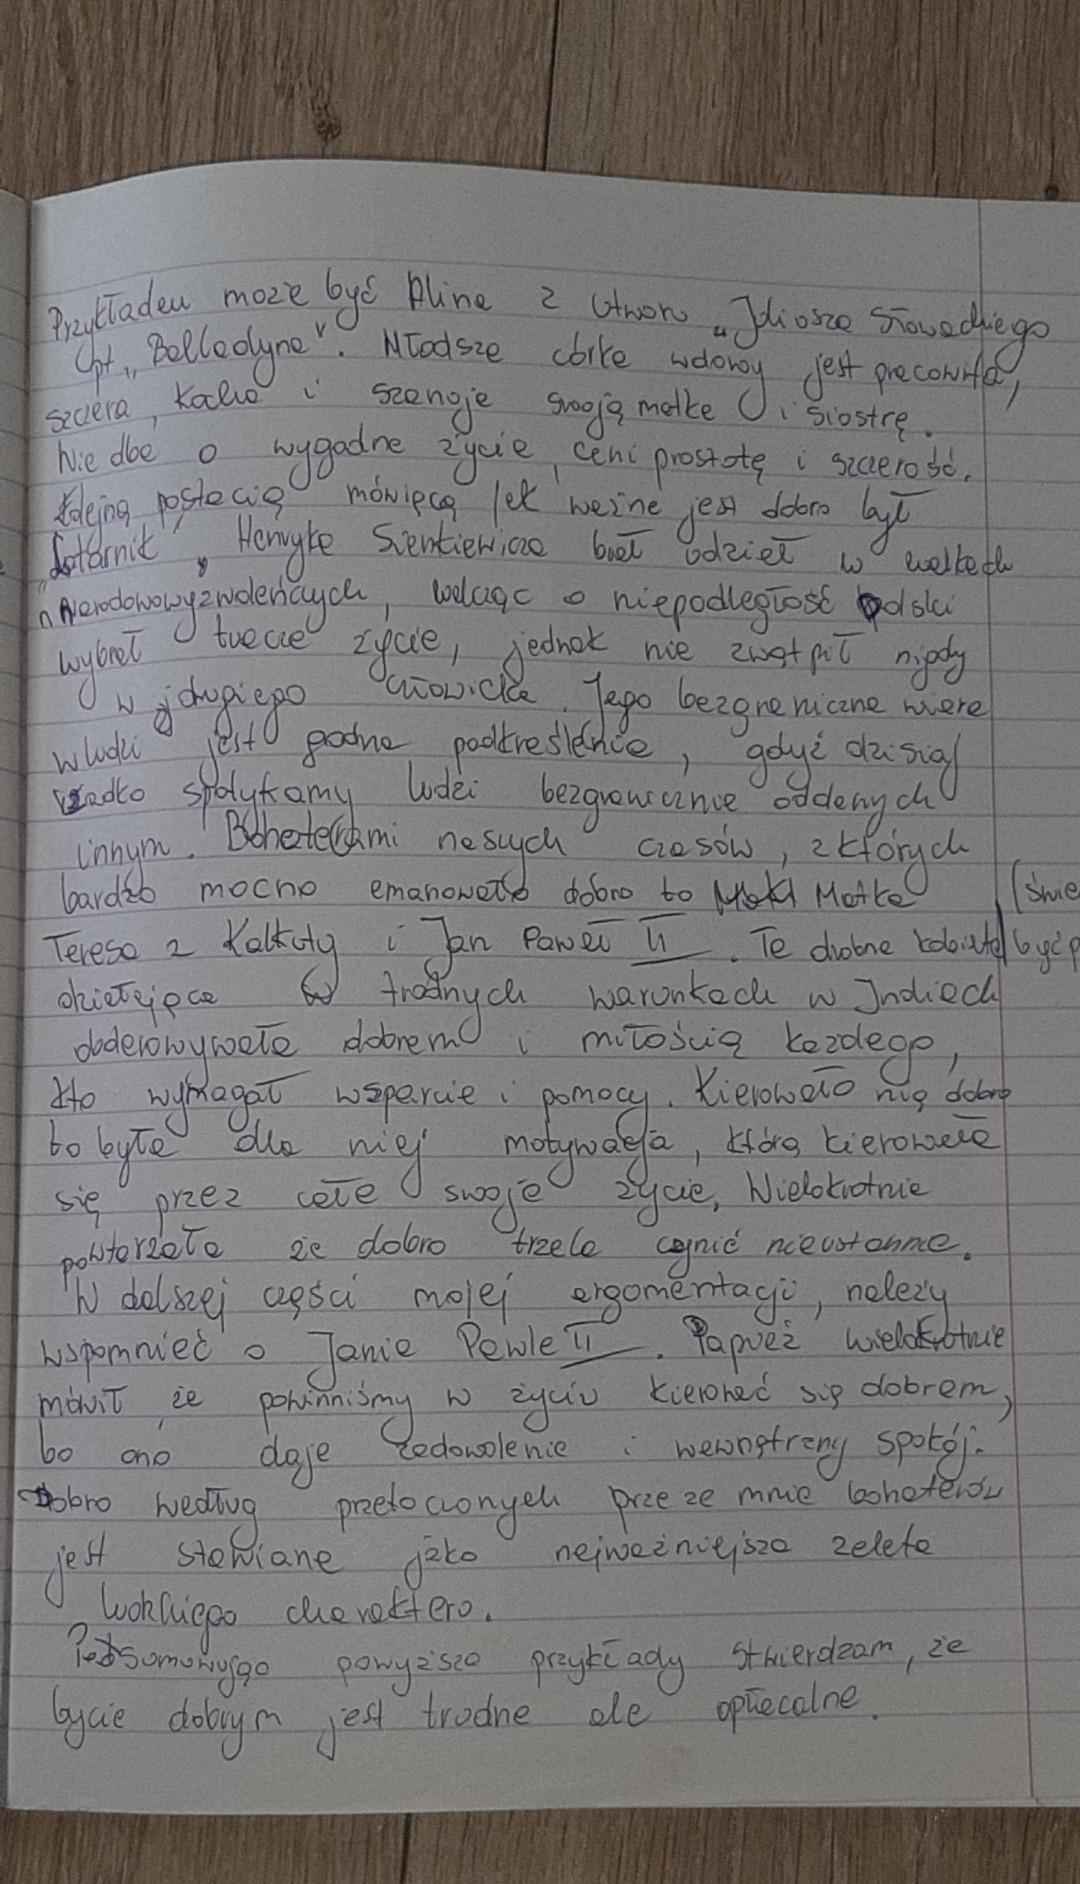 Przykładem może być Alina z utworu „Juliusza Słowackiego
pt „Balladyna". Młodsza córka wdowy jest pracowita,
szczera, kocha i szanuje swoją matkę i siostrę.
Nie dba o wygodne życie, ceni prostotę i szczerość.
Kolejną postacią mówiącą jak ważne jest dobro był
„Latarnik", Henryka Sienkiewicza brał udział w walkach
narodowowyzwoleńczych, walcząc o niepodległość Polski
wybrał życie, jednak nie zwątpił nigdy
w drugiego człowieka. Jego bezgraniczna wiara
w ludzi jest godna podkreślenia, gdyż dzisiaj
rzadko spotykamy ludzi bezgranicznie oddanych
innym. Bohaterami naszych czasów, z których
bardzo mocno emanowało dobro to Matka
Teresa z Kalkuty i Jan Paweł II. Ta drobna kobieta
działająca w trudnych warunkach w Indiach
obdarowywała dobrem i miłością każdego,
kto wymagał wsparcia i pomocy. Kierowało nią dobro
bo była dla niej motywacja, którą kierowała
się przez całe swoje życie, Wielokrotnie
powtarzała że dobro trzeba czynić nieustannie.
W dalszej części mojej argumentacji, należy
wspomnieć o Janie Pawle II. Papież wielokrotnie
mówił, że powinniśmy w życiu kierować się dobrem,
bo ono daje zadowolenie i wewnętrzny spokój.
Dobro według przytoczonych przeze mnie bohaterów
jest stawiane jako najważniejsza zaleta
ludzkiego charakteru.
Podsumowując powyższe przykłady stwierdzam, że
bycie dobrym jest trudne ale opłacalne.